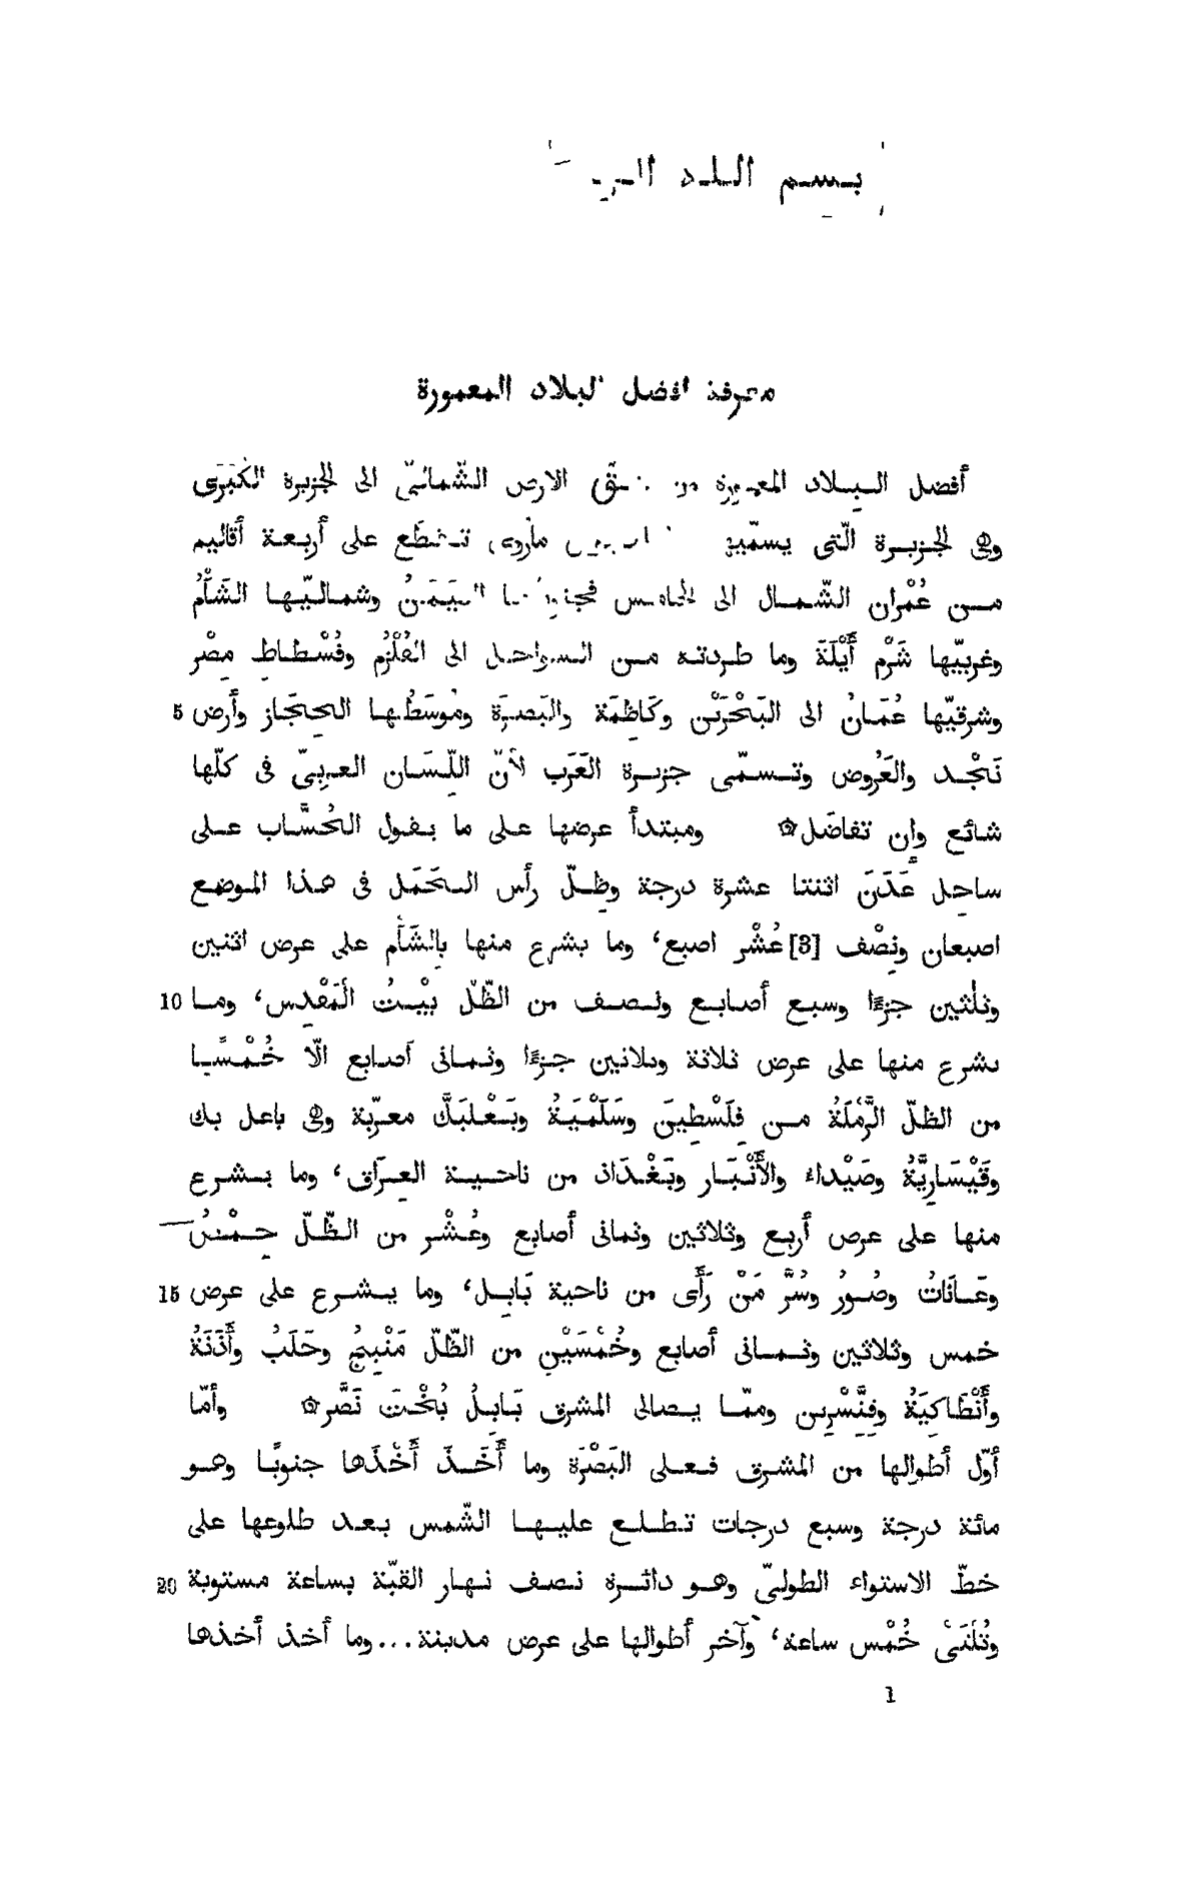 بسم الله
معرفة افضل البلاد المعمورة
أفضل البلاد المعمورة من شقّ الارض الشّماليّ الى الجزيرة الكُبْرَى
وهى الجزيرة الّتى يسمّيها تقطع على أربعة أقاليم
من عُمْران الشّمال الى الخامس فجنوبيّها اليَمَنُ وشماليّها الشَّأْمُ
وغربيّها شَرْم أَيْلَةَ وما طردته من السواحل الى القُلْزُم وفُسْطاط مِصْر
5 وشرقيّها عُمَانُ الى البَحْرَيْن وكَاظِمَة والبَصرَة ومُوسَطُها الحِجَاز وأرض
نَجْد والعَرُوض وتسمّى جزيرة العَرَب لأنّ اللِّسَان العربِىّ فى كلّها
شائع وإن تفاضَل۞ ومبتدأ عرضها على ما يقول الحُسَّاب على
ساحِل عَدَنَ اثنتا عشرة درجة وظِلّ رأس الحَمَل فى هذا الموضع
اصبعان ونِصْف [3] عُشْر اصبع، وما يشرع منها بالشَأْم على عرض اثنين
10 وثلثين جزءًا وسبع أصابع ونصف من الظّلّ بيْتُ المَقْدِس، وما
يشرع منها على عرض ثلاثة وثلاثين جزءًا وثمانى أصابع الّا خُمْسًا
من الظلّ الرَّمْلَةُ من فِلَسْطِينَ وسَلَمْيَةُ وبَعْلَبَكَّ معرّبة وهى باعل بك
وقَيْسَارِيَّةُ وصَيْداء والأَنْبَار وبَغْدَاد من ناحية العِرَاق، وما يشرع
منها على عرض أربع وثلاثين وثمانى أصابع وعُشْر من الظّلّ حِمْصُ
15 وعَانَاتُ وصُورُ وسُرَّ مَنْ رَأَى من ناحية بَابِل، وما يشرع على عرض
خمس وثلاثين وثمانى أصابع وخُمْسَيْنِ من الظّلّ مَنْبِجُ وحَلَبُ وأَذَنَةُ
وأَنْطَاكِيَةُ وقِنَّسْرِين وممّا يصالى المشرق بَابِلُ بُخْتَ نَصَّر۞ وأمّا
أوّل أطوالها من المشرق فعلى البَصْرَة وما أَخَذَ أَخْذَها جنوبًا وهو
مائة درجة وسبع درجات تطلع عليها الشّمس بعد طلوعها على
20 خطّ الاستواء الطولىّ وهو دائرة نصف نهار القبّة بساعة مستوية
وثُلثَىْ خُمْس ساعة، وآخر أطوالها على عرض مدينة...وما أخذ أخذها
1